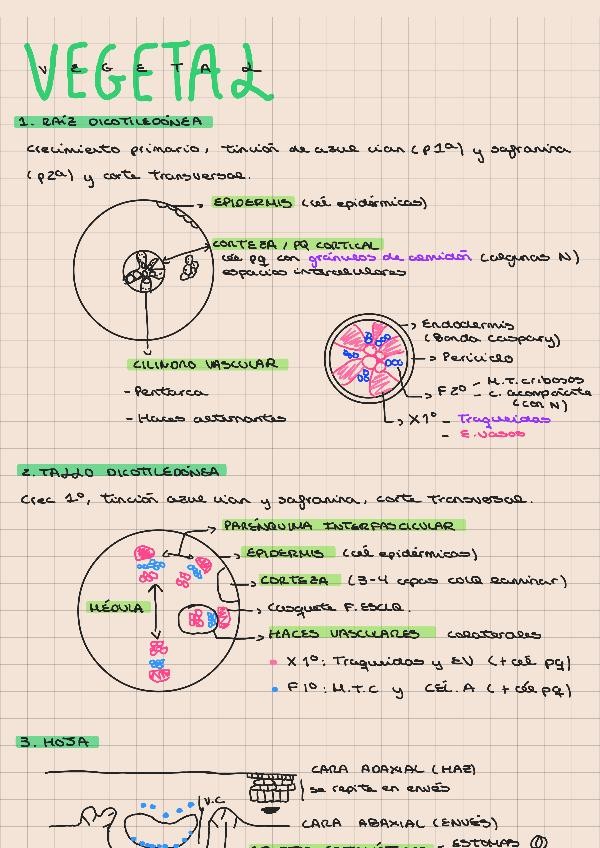 VEGETAL
VEGETAL
1. RAÍZ DICOTILEDÓNEA
Crecimiento primario, tinción de azul cian (p1ª) y safranina
(p2ª) y corte transversal.
EPIDERMIS (cél epidérmicas)
CORTEZA / PQ CORTICAL
cél pq con gránulos de almidón (algunas N)
espacios intercelulares
Endodermis
(Banda caspary)
Periciclo
CILINDRO VASCULAR
F 2º - M.T. cribosos
- Pentarca
- C. acompañante
(con N)
- Haces alternantes
X 1º - Traqueidas
- E. Vasos
2. TALLO DICOTILEDÓNEA
Crec 1º, tinción azul cian y safranina, corte transversal.
PARÉNQUIMA INTERFASCICULAR
EPIDERMIS (cél epidérmicas)
CORTEZA (3-4 capas colq laminar)
MÉDULA
Casquete F. ESCLQ.
HACES VASCULARES colaterales
X 1º: Traqueidas y EV (+ cél pq)
F 1º: M.T.C y CÉL. A (+ cél pq)
3. HOJA
CARA ADAXIAL (HAZ)
se repite en envés
V.C
CARA ABAXIAL (ENVÉS)
ESTOMAS